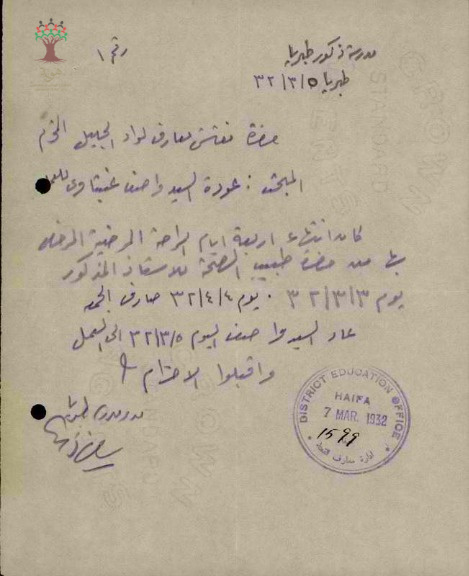 مدرسة ذكور طبريا
طبريا ٣٢/٣/٥
رقم ١
حضرة مفتش معارف لواء الجليل المحترم
المبحث : عودة السيد واصف للعمل
كان انتهاء اربعة ايام الراحة المرضية المرخص
بها من حضرة طبيب الصحة للاستاذ المذكور
يوم ٣٢/٣/٣ . يوم ٣٢/٤/٤ صادف الجمعة
عاد السيد واصف اليوم ٣٢/٣/٥ الى العمل
واقبلوا الاحترام
مدير مدرسة طبريا
DISTRICT EDUCATION OFFICE
HAIFA
7 MAR. 1932
1599
ادارة معارف
CROWN